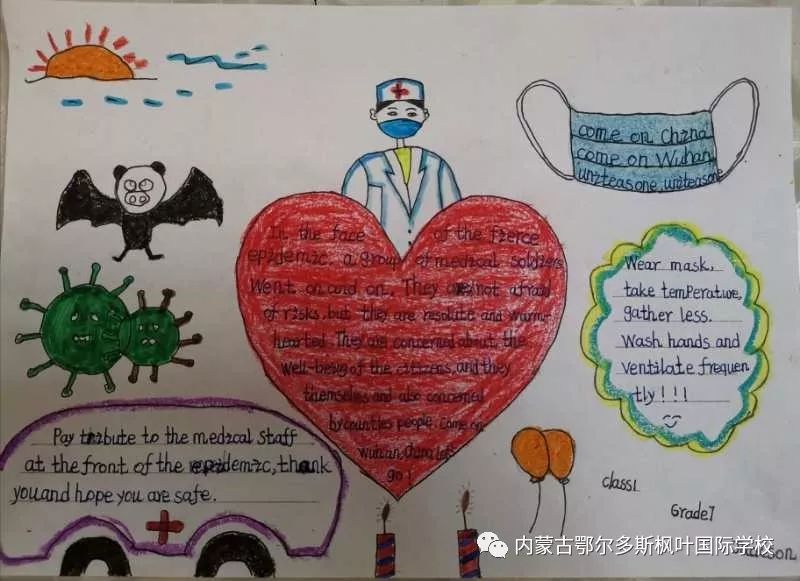 come on China
come on Wuhan
uniteasone uniteasone
In the face of the fierce
epidemic, a group of medical soldiers
went on and on. They are not afraid
of risks, but they are resolute and warm-
hearted. They are concerned about the
well-being of the citizens, and they
themselves and also concerned
by countles people. Come on
wuhan, China let's
go!
Wear mask,
take temperature,
gather less.
Wash hands and
ventilate frequen
tly!!!
Pay tribute to the medical staff
at the front of the epidemic, thank
you and hope you are safe.
class1
Grade7
内蒙古鄂尔多斯枫叶国际学校